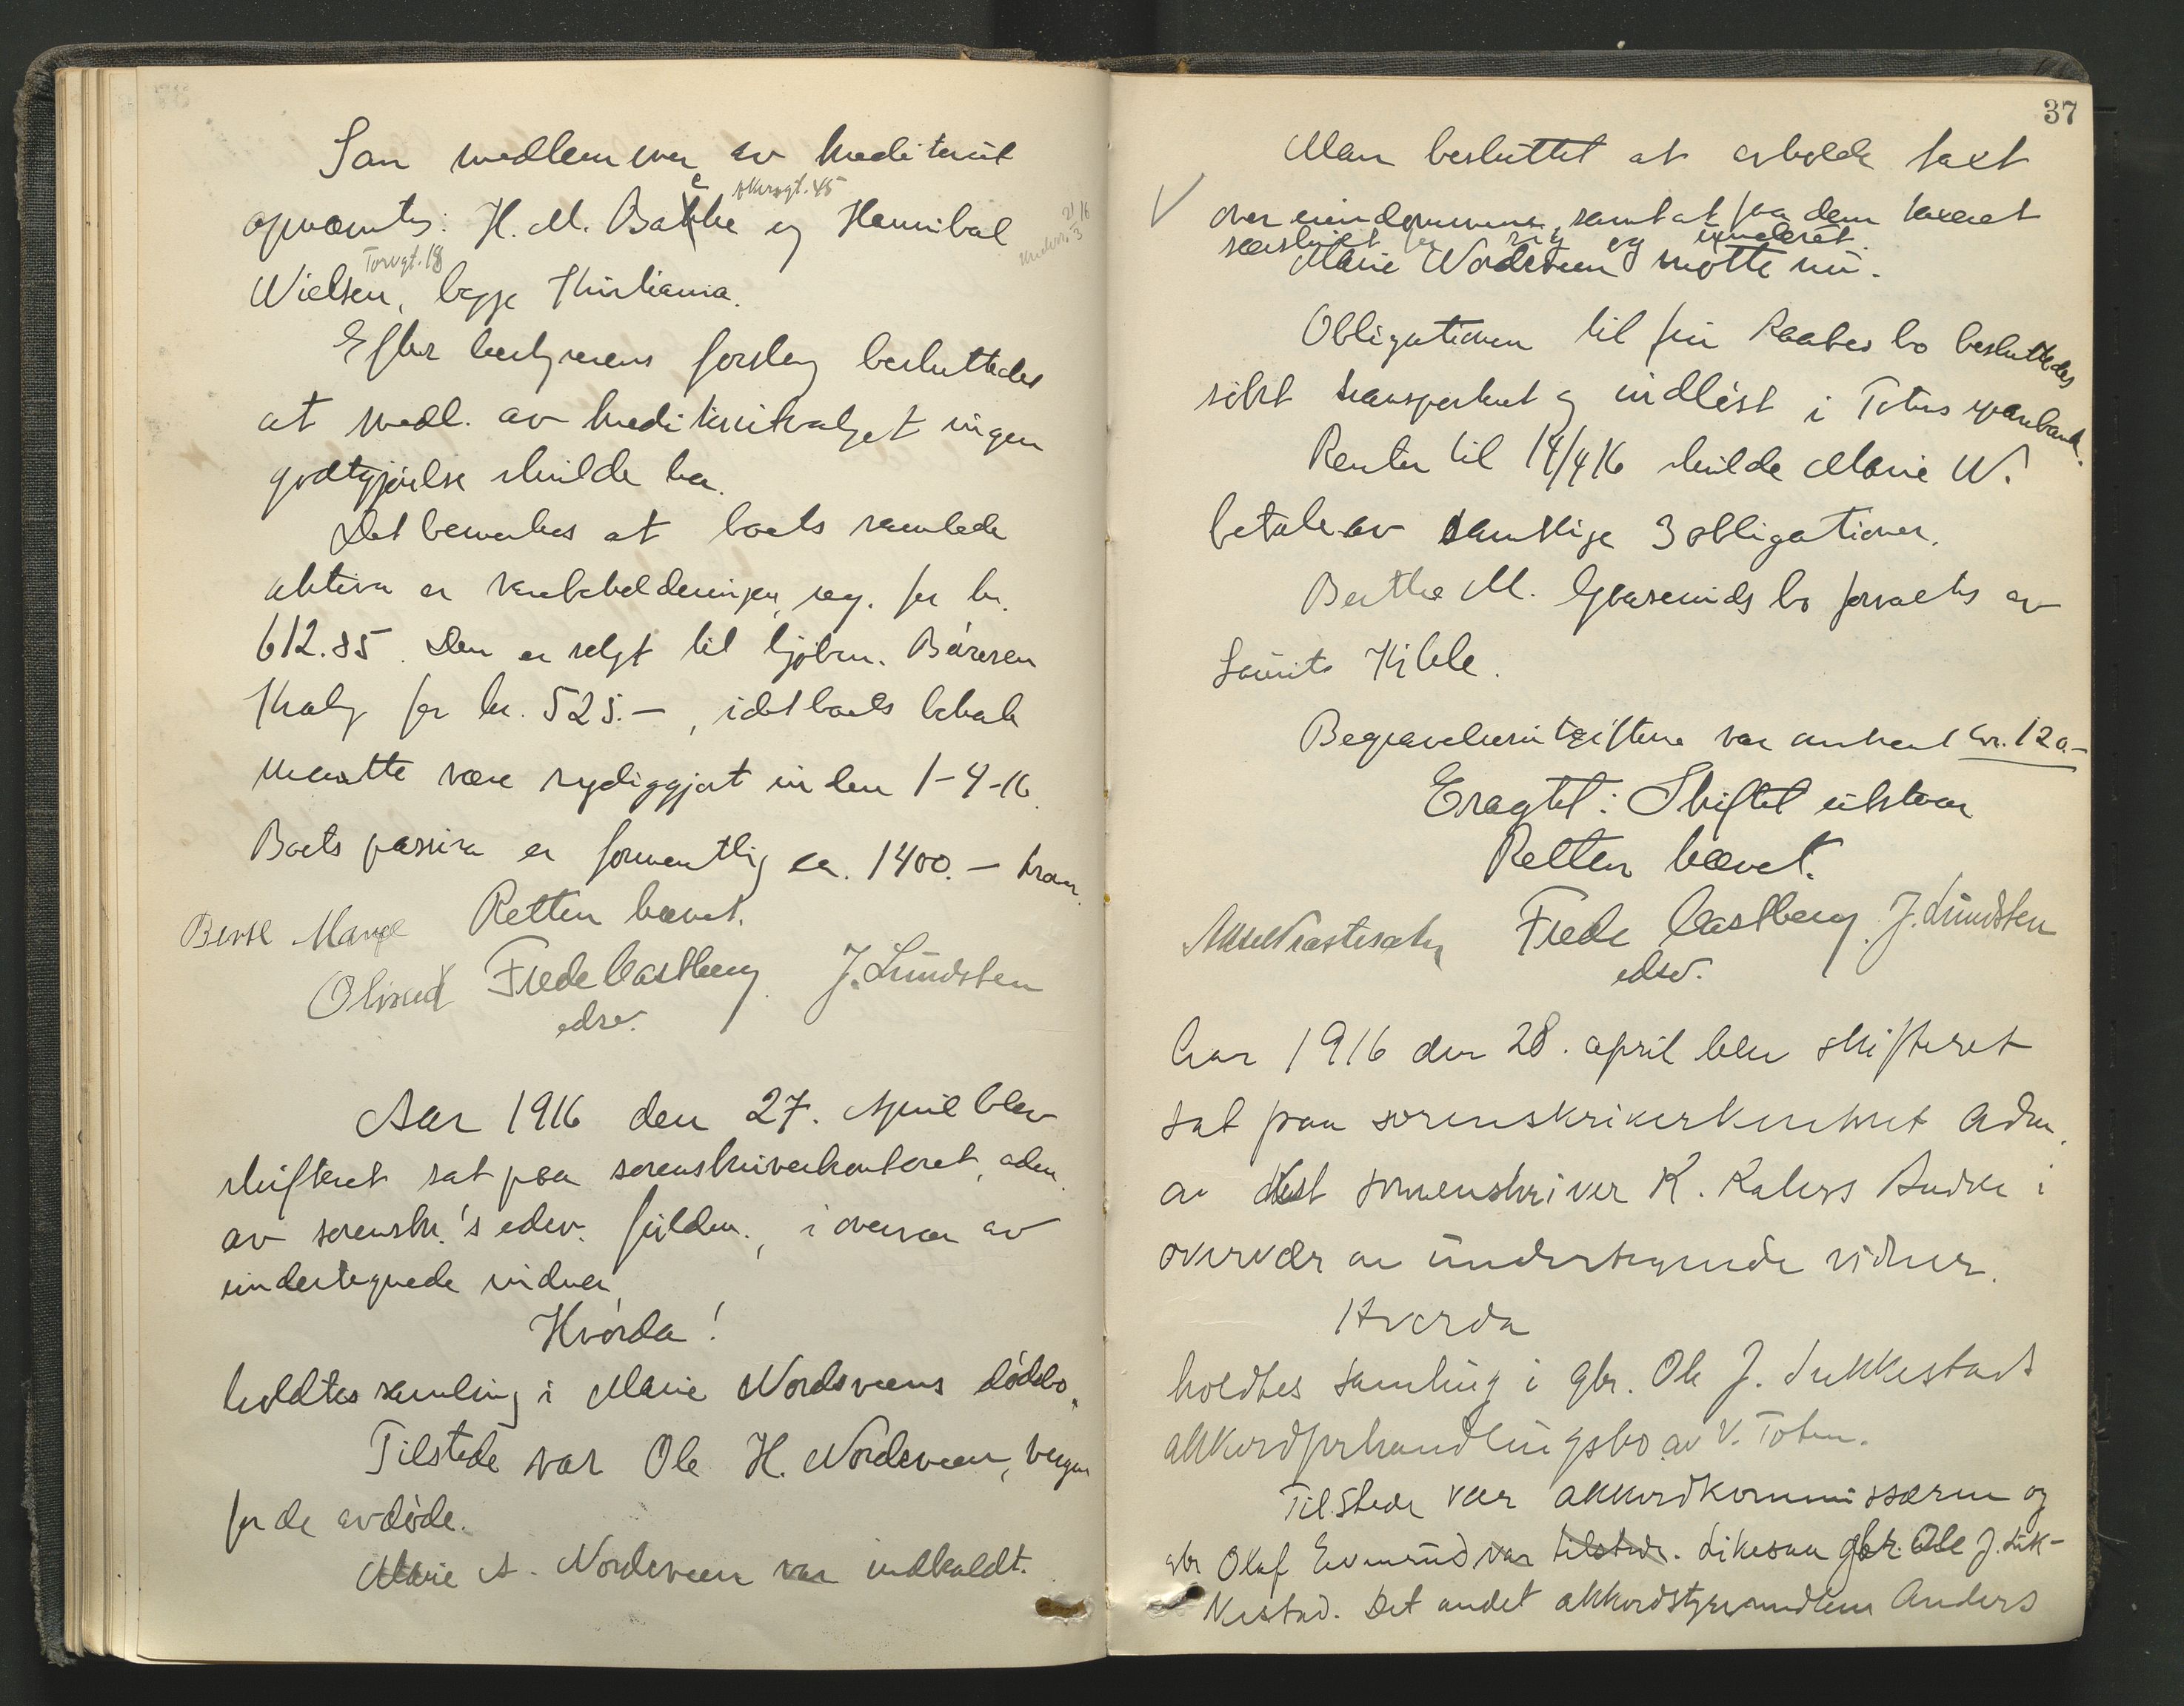 Som medlemmer av kreditorut
opnævntes: H. M. Bakke og Hannibal
Akersgt. 45
Torvgt. 18
Nielsen, begge Kristiania.
Efter bestyrerens forslag besluttedes
at medl. av kreditorutvalget ingen
godtgjørelse skulde ha.
Det bemerkes at boets samlede
aktiva er varebeholdningen, reg. for kr.
612.85. Den er solgt til kjøbm.
Kraby for kr. 525.-, idet boets lokale
maatte være rydiggjort inden 1-4-16.
Boets passiva er formentlig ca. 1400.- kron.
Retten hævet.
Frede Castberg J. Lundsten
edsv.
Aar 1916 den 27. April blev
skifteret sat paa sorenskriverkontoret, adm.
av sorenskr.'s edsv. fuldm., i overvær av
undertegnede vidner,
Hvorda!
holdtes samling i Marie Nordsveens dødsbo.
Tilstede var Ole H. Nordsveen, vergen
for de avdøde.
Marie A. Nordsveen var indkaldt.
37
Man besluttet at avholde taxt
over eiendommene, samt at faa dem taxeret
særskilt for sig og
Marie Nordsveen møtte nu.
Obligationen til fru Raabes bo besluttedes
søkt transportert og indløst i Totens sparebank.
Renter til 14/4 16 skulde Marie N.
betale av samtlige 3 obligationer.
Berthe M. bo forvaltes av
Laurits Kjelle.
Begravelsesutgiftene var anført kr. 120.-
Eragtet: Skiftet utstaar
Retten hævet.
Frede Castberg. J. Lundsten
edsv.
Aar 1916 den 28. april blev skifteret
sat paa sorenskriverkontoret adm.
av sorenskriver K. i
overvær av undertegnede vidner.
Hvorda
holdtes samling i gbr. Ole J. Lukkestads
akkordforhandlingsbo av V. Toten.
Tilstede var akkordkommissæren og
gbr Olaf var tilstede. Likesaa gbr. Ole J. Luk-
kestad. Det andet akkordstyremedlem Anders